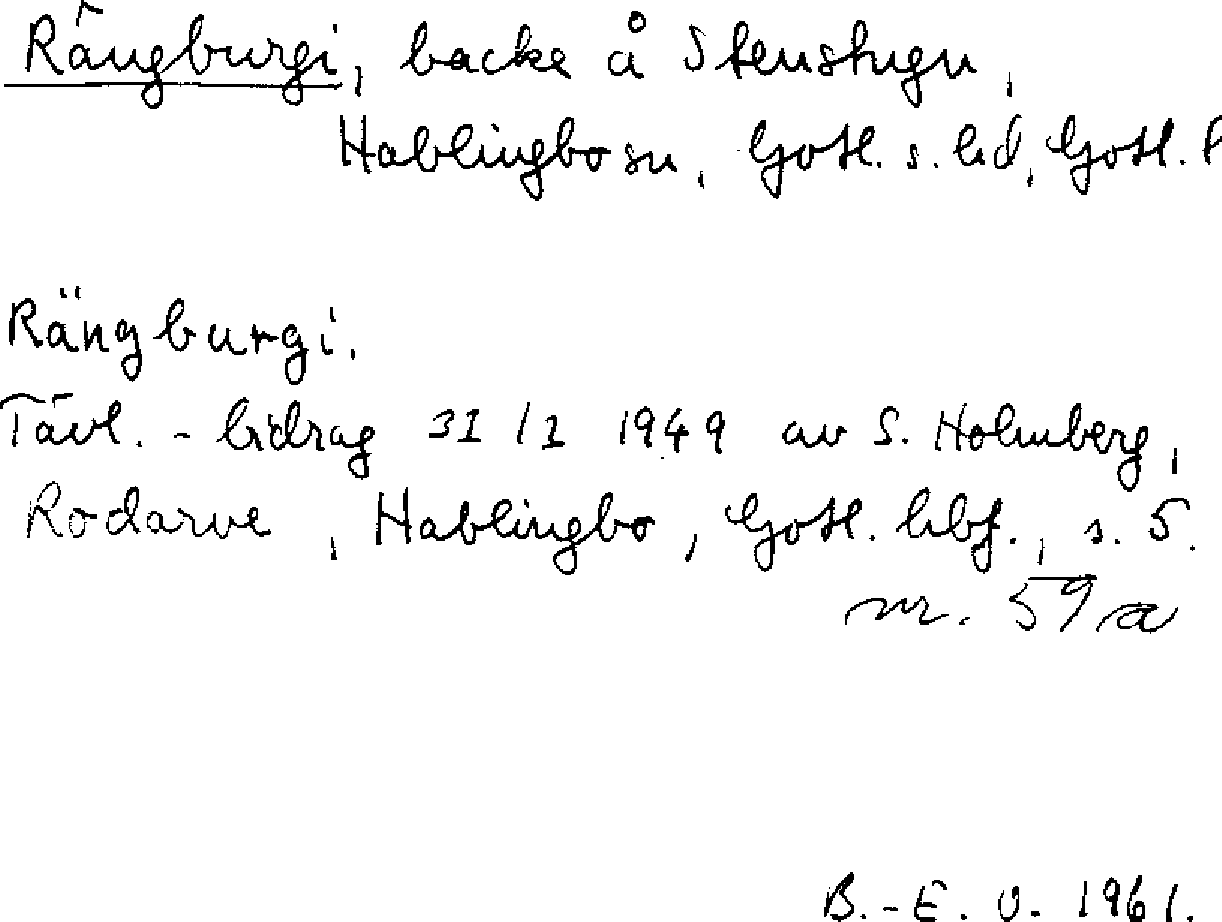 Rängburgi, backe å Stenstugu,
Hablingbo sn, Gotl. s. hd, Gotl. l
Rängburgi.
Tävl. - bidrag 31 / 1 1949 av S. Holmberg,
Rodarve, Hablingbo, Gotl. hbf., s. 5.
nr. 59 a
B.-E. O. 1961.